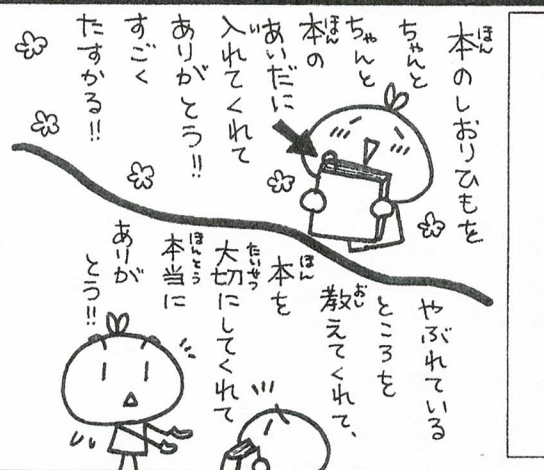 本のしおりひもを
ちゃんと
ちゃんと
本の
あいだに
入れてくれて
ありがとう!!
すごく
たすかる!!
やぶれている
ところを
教えてくれて、
本を
大切にしてくれて
本当に
ありが
とう!!